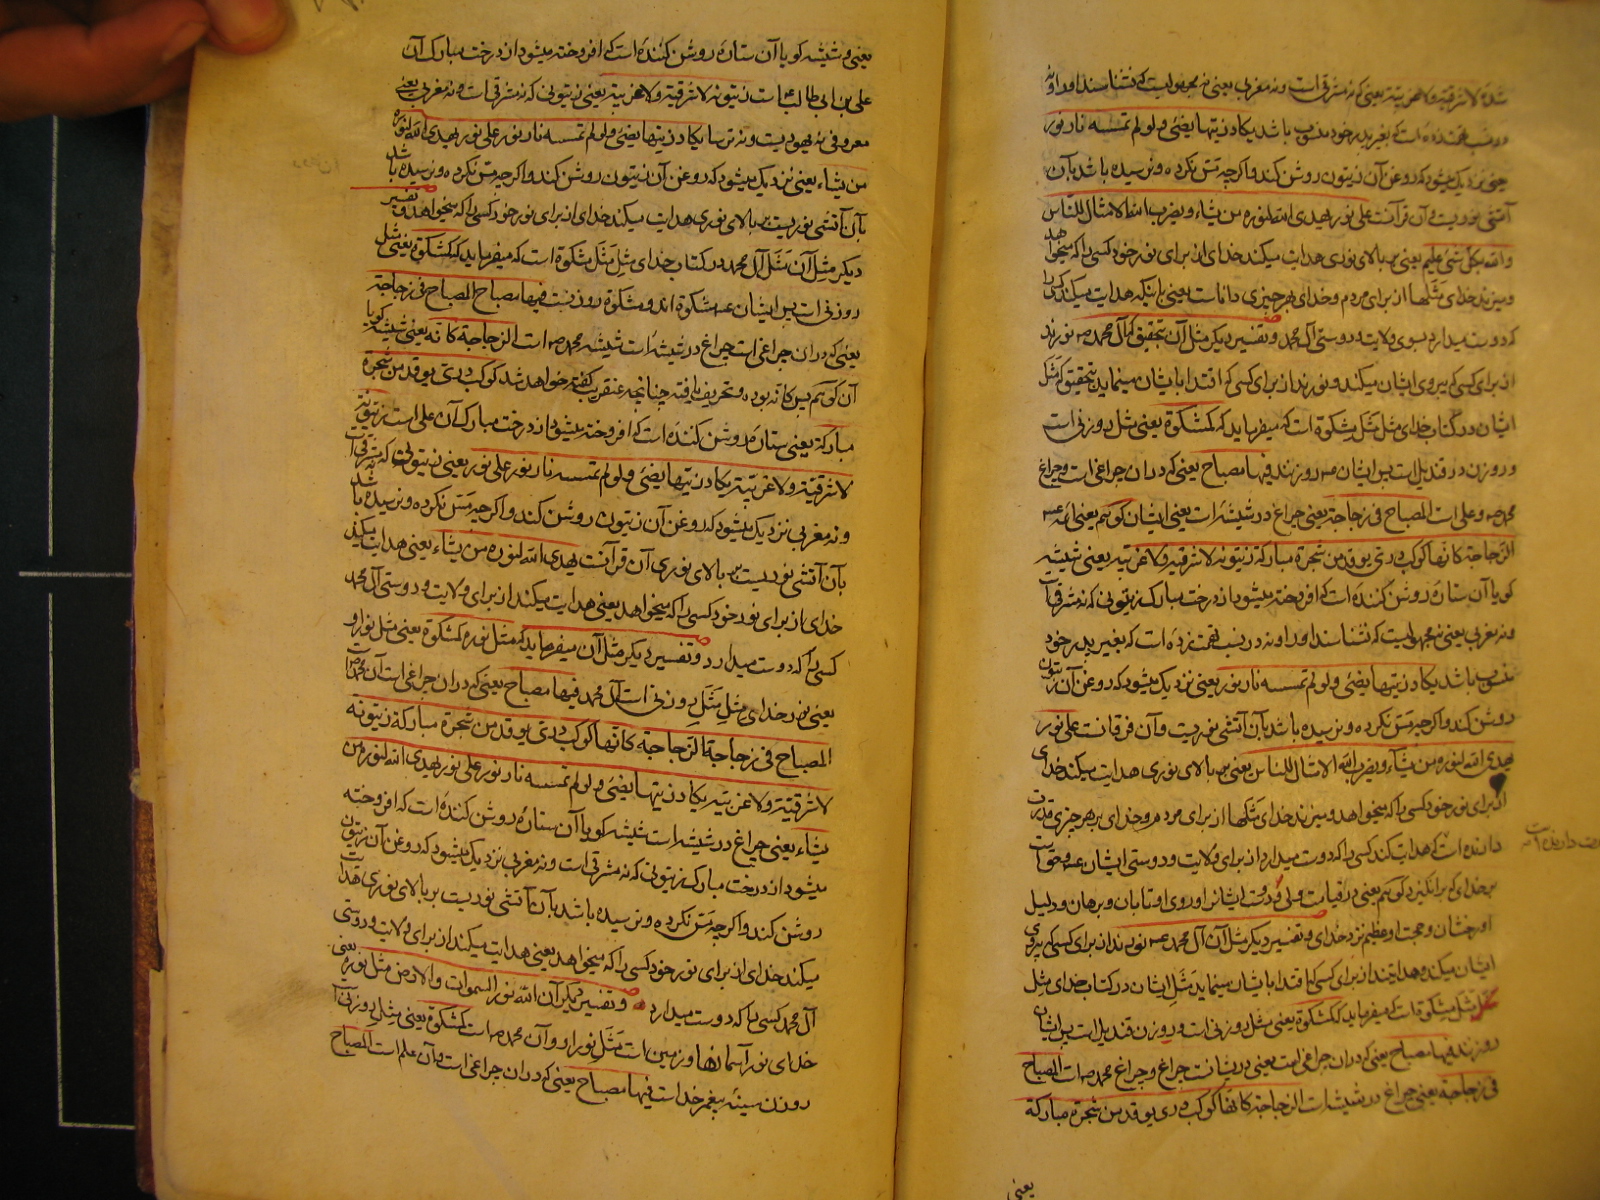 شده لا شرقیة ولا غربیة یعنی که نه مشرقی است و نه مغربی یعنی نه مجهولیست که نشناسند او را و نه
است که بغیر پدر خود منسوب باشد یکاد زیتها یضئ ولو لم تمسسه نار نور
یعنی نزدیک میشود که روغن آن زیتون روشن کند و اگرچه مس نکرده و نرسیده باشد بآن
آتشی نوریست و آن قرآنست علی نور یهدی الله لنوره من یشاء ویضرب الله الامثال للناس
والله بکل شئ علیم یعنی بر بالای نوری هدایت میکند خدای از برای نور خود کسی را که میخواهد
و میزند خدای مثلها از برای مردم و خدای بهر چیزی داناست یعنی باینکه هدایت میکند کسی را
که دوست میدارد بسوی ولایت و دوستی آل محمد و تفسیر دیگر مثل آن بتحقیق که آل محمد ص نورند
از برای کسی که پیروی ایشان میکند و نورند از برای کسی که اقتدا بایشان مینماید بتحقیق که مثل
ایشان در کتاب خدای مثل مثل مشکوة است که میفرماید که کمشکوة یعنی مثل روزنی است
و روزن در قندیل است پس ایشان عم روزنند فیها مصباح یعنی که در آن چراغی است و چراغ
محمد ص و علی است المصباح فی زجاجة یعنی چراغ در شیشه است یعنی ایشان گویم یعنی ائمه عم
الزجاجة کانها کوکب دری یوقد من شجرة مبارکة زیتونة لا شرقیة ولا غربیة یعنی شیشه
گویا آن ستاره روشن کننده است که افروخته میشود از درخت مبارک زیتونی که نه مشرقی است
و نه مغربی یعنی نه مجهولیست که نشناسند او را و نه در نسب تهمت زده است که بغیر پدر خود
منسوب باشد یکاد زیتها یضئ ولو لم تمسسه نار نور یعنی نزدیک میشود که روغن آن زیتون
روشن کند و اگرچه مس نکرده و نرسیده باشد بآن آتشی نوریست و آن فرقانست علی نور
یهدی الله لنوره من یشاء ویضرب الله الامثال للناس یعنی بر بالای نوری هدایت میکند خدای
از برای نور خود کسی را که میخواهد و میزند خدای مثلها از برای مردم و خدای بر هر چیزی قدرت
دارنده است که هدایت کند کسی را که دوست میدارد از برای ولایت و دوستی ایشان عم و حق است
بر خدای که برانگیزد گویم یعنی در قیامت ولی و دوست ایشانرا و روی او تابان و برهان و دلیل
او رخشان و حجت او عظیم نزد خدای و تفسیر دیگر مثل آن آل محمد عم نورند از برای کسی که پیروی
ایشان میکند و هدایتند از برای کسی که اقتدا بایشان مینماید مثل ایشان در کتاب خدای مثل
مثل مشکوة است که میفرماید که کمشکوة یعنی مثل روزنی است و روزن قندیل است پس ایشان
روزنند فیها مصباح یعنی که در آن چراغی است یعنی در ایشانست چراغ و چراغ محمد ص است المصباح
فی زجاجة یعنی چراغ در شیشه است الزجاجة کانها کوکب دری یوقد من شجرة مبارکة
یعنی
یعنی و شیشه گویا آن ستاره روشن کننده است که افروخته میشود از درخت مبارک آن
علی بن ابی طالب است زیتونة لا شرقیة ولا غربیة یعنی زیتونی که نه مشرقی است و نه مغربی یعنی
معروفی نه یهودیست و نه ترسا یکاد زیتها یضئ ولو لم تمسسه نار نور علی نور یهدی الله لنوره
من یشاء یعنی نزدیک میشود که روغن آن زیتون روشن کند و اگرچه مس نکرده و نرسیده باشد
بآن آتشی نوریست بر بالای نوری هدایت میکند خدای از برای نور خود کسی را که میخواهد و تفسیر
دیگر مثل آن مثل آل محمد در کتاب خدای مثل مثل مشکوة است که میفرماید که کمشکوة یعنی مثل
روزنی است پس ایشان عم مشکوة اند و مشکوة روزنست فیها مصباح المصباح فی زجاجة
یعنی که در آن چراغی است چراغ در شیشه است شیشه محمد ص است الزجاجة کانه یعنی شیشه گویا
آن گویم پس کانه بوده و تحریف یافته چنانچه عنقریب گفته خواهد شد کوکب دری یوقد من شجرة
مبارکة یعنی ستاره روشن کننده است که افروخته میشود از درخت مبارک آن علی است زیتونة
لا شرقیة ولا غربیة یکاد زیتها یضئ ولو لم تمسسه نار نور علی نور یعنی زیتونی که نه مشرقی است
و نه مغربی نزدیک میشود که روغن آن زیتون روشن کند و اگرچه مس نکرده و نرسیده باشد
بآن آتشی نوریست بر بالای نوری آن قرآنست یهدی الله لنوره من یشاء یعنی هدایت میکند
خدای از برای نور خود کسی را که میخواهد یعنی هدایت میکند از برای ولایت و دوستی آل محمد
کسی را که دوست میدارد و تفسیر دیگر مثل آن میفرماید که مثل نوره کمشکوة یعنی مثل نور او
یعنی نور خدای مثل مثل روزنی است آل محمد فیها مصباح یعنی که در آن چراغی است آن محمد ص است
المصباح فی زجاجة الزجاجة کانها کوکب دری یوقد من شجرة مبارکة زیتونة
لا شرقیة ولا غربیة یکاد زیتها یضئ ولو لم تمسسه نار نور علی نور یهدی الله لنوره من
یشاء یعنی چراغ در شیشه است شیشه گویا آن ستاره روشن کننده است که افروخته
میشود از درخت مبارک زیتونی که نه مشرقی است و نه مغربی نزدیک میشود که روغن آن زیتون
روشن کند و اگرچه مس نکرده و نرسیده باشد بآن آتشی نوریست بر بالای نوری هدایت
میکند خدای از برای نور خود کسی را که میخواهد یعنی هدایت میکند از برای ولایت و دوستی
آل محمد کسی را که دوست میدارد و تفسیر دیگر آن الله نور السموات والارض مثل نوره یعنی
خدای نور آسمانها و زمین است مثل نور او و آن محمد ص است کمشکوة یعنی مثل روزنی است
روزن سینه پیغمبر خداست فیها مصباح یعنی که در آن چراغی است و آن علم است المصباح